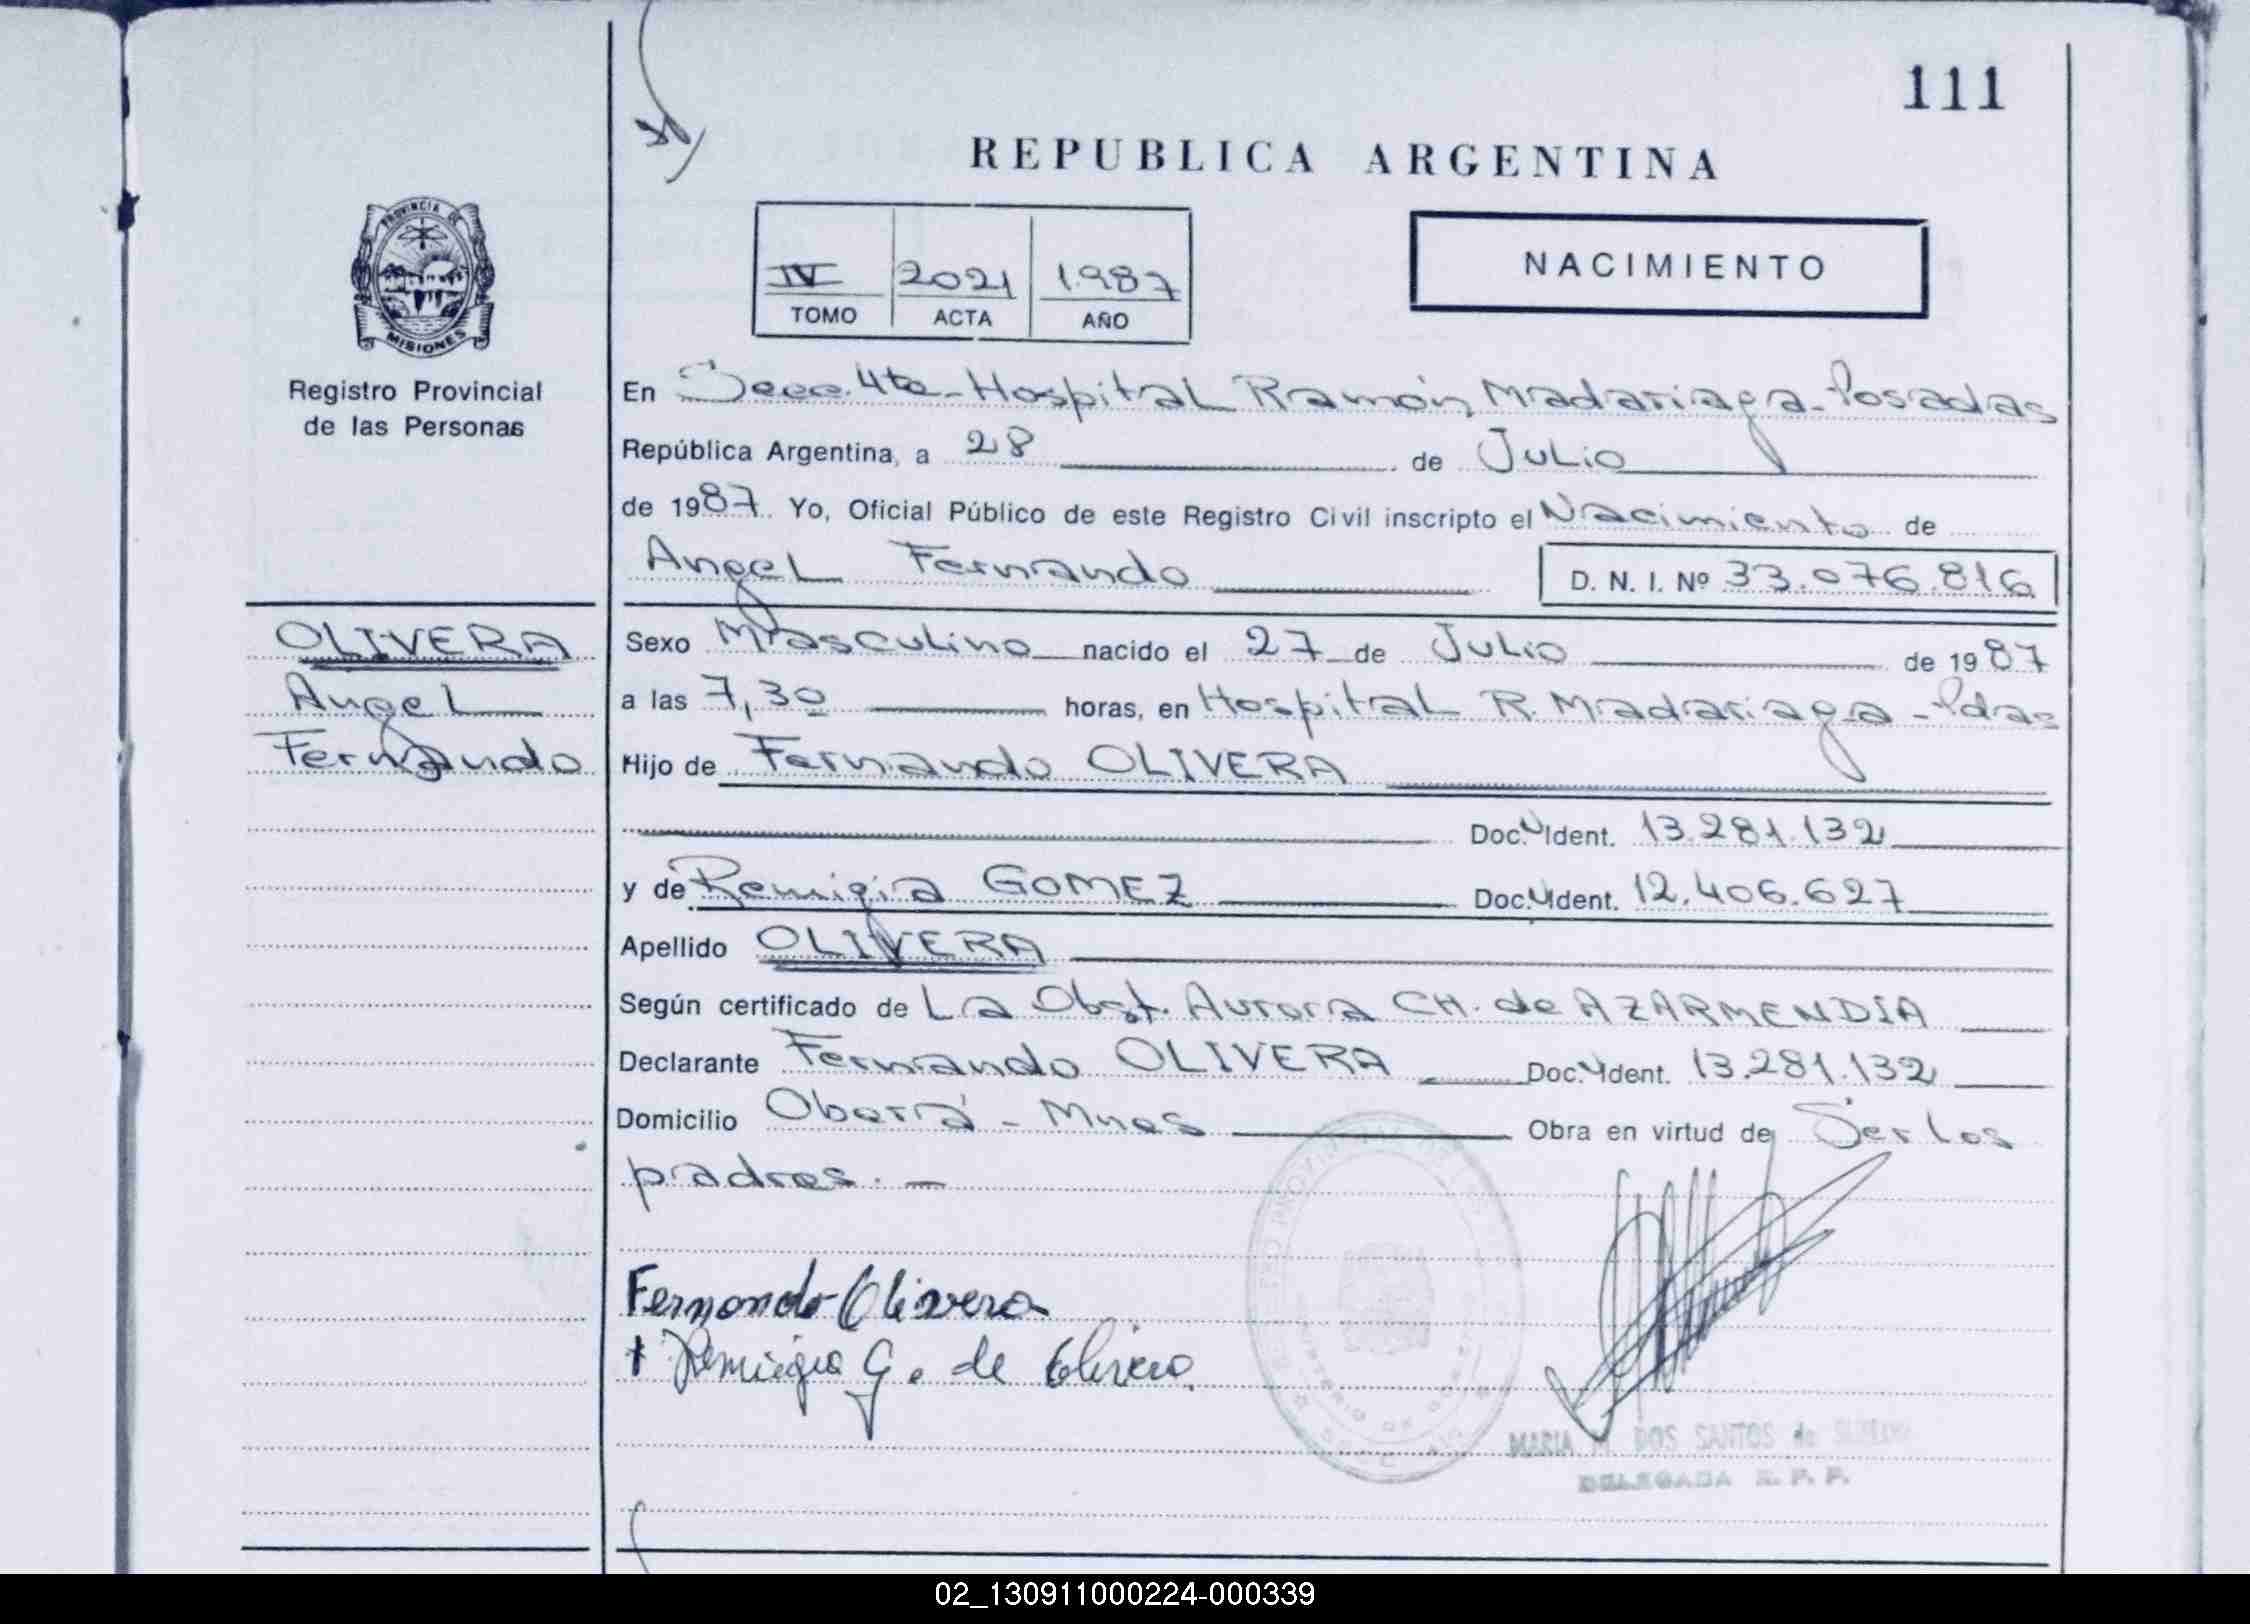 111
REPUBLICA ARGENTINA
PROVINCIA DE
MISIONES
Registro Provincial
de las Personas
IV 2021 1987
TOMO ACTA AÑO
NACIMIENTO
En Secc. 4ta - Hospital Ramón Madariaga - Posadas
República Argentina, a 28 de Julio
de 1987 Yo, Oficial Público de este Registro Civil inscripto el Nacimiento de
Angel Fernando D. N. I. Nº 33.076.816
OLIVERA
Angel
Fernando
Sexo Masculino nacido el 27 de Julio de 1987
a las 7,30 horas, en Hospital R. Madariaga - Pdas
Hijo de Fernando OLIVERA
Doc. Ident. 13.281.132
y de Remigia GOMEZ Doc. Ident. 12.406.627
Apellido OLIVERA
Según certificado de La Obst. Aurora CH. de AZARMENDIA
Declarante Fernando OLIVERA Doc. Ident. 13.281.132
Domicilio Oberá - Mnes Obra en virtud de Ser los
padres. -
Fernando Olivera
Remigia G. de Olivera
MARIA M. DOS SANTOS de
DELEGADA R. P. P.
02_130911000224-000339